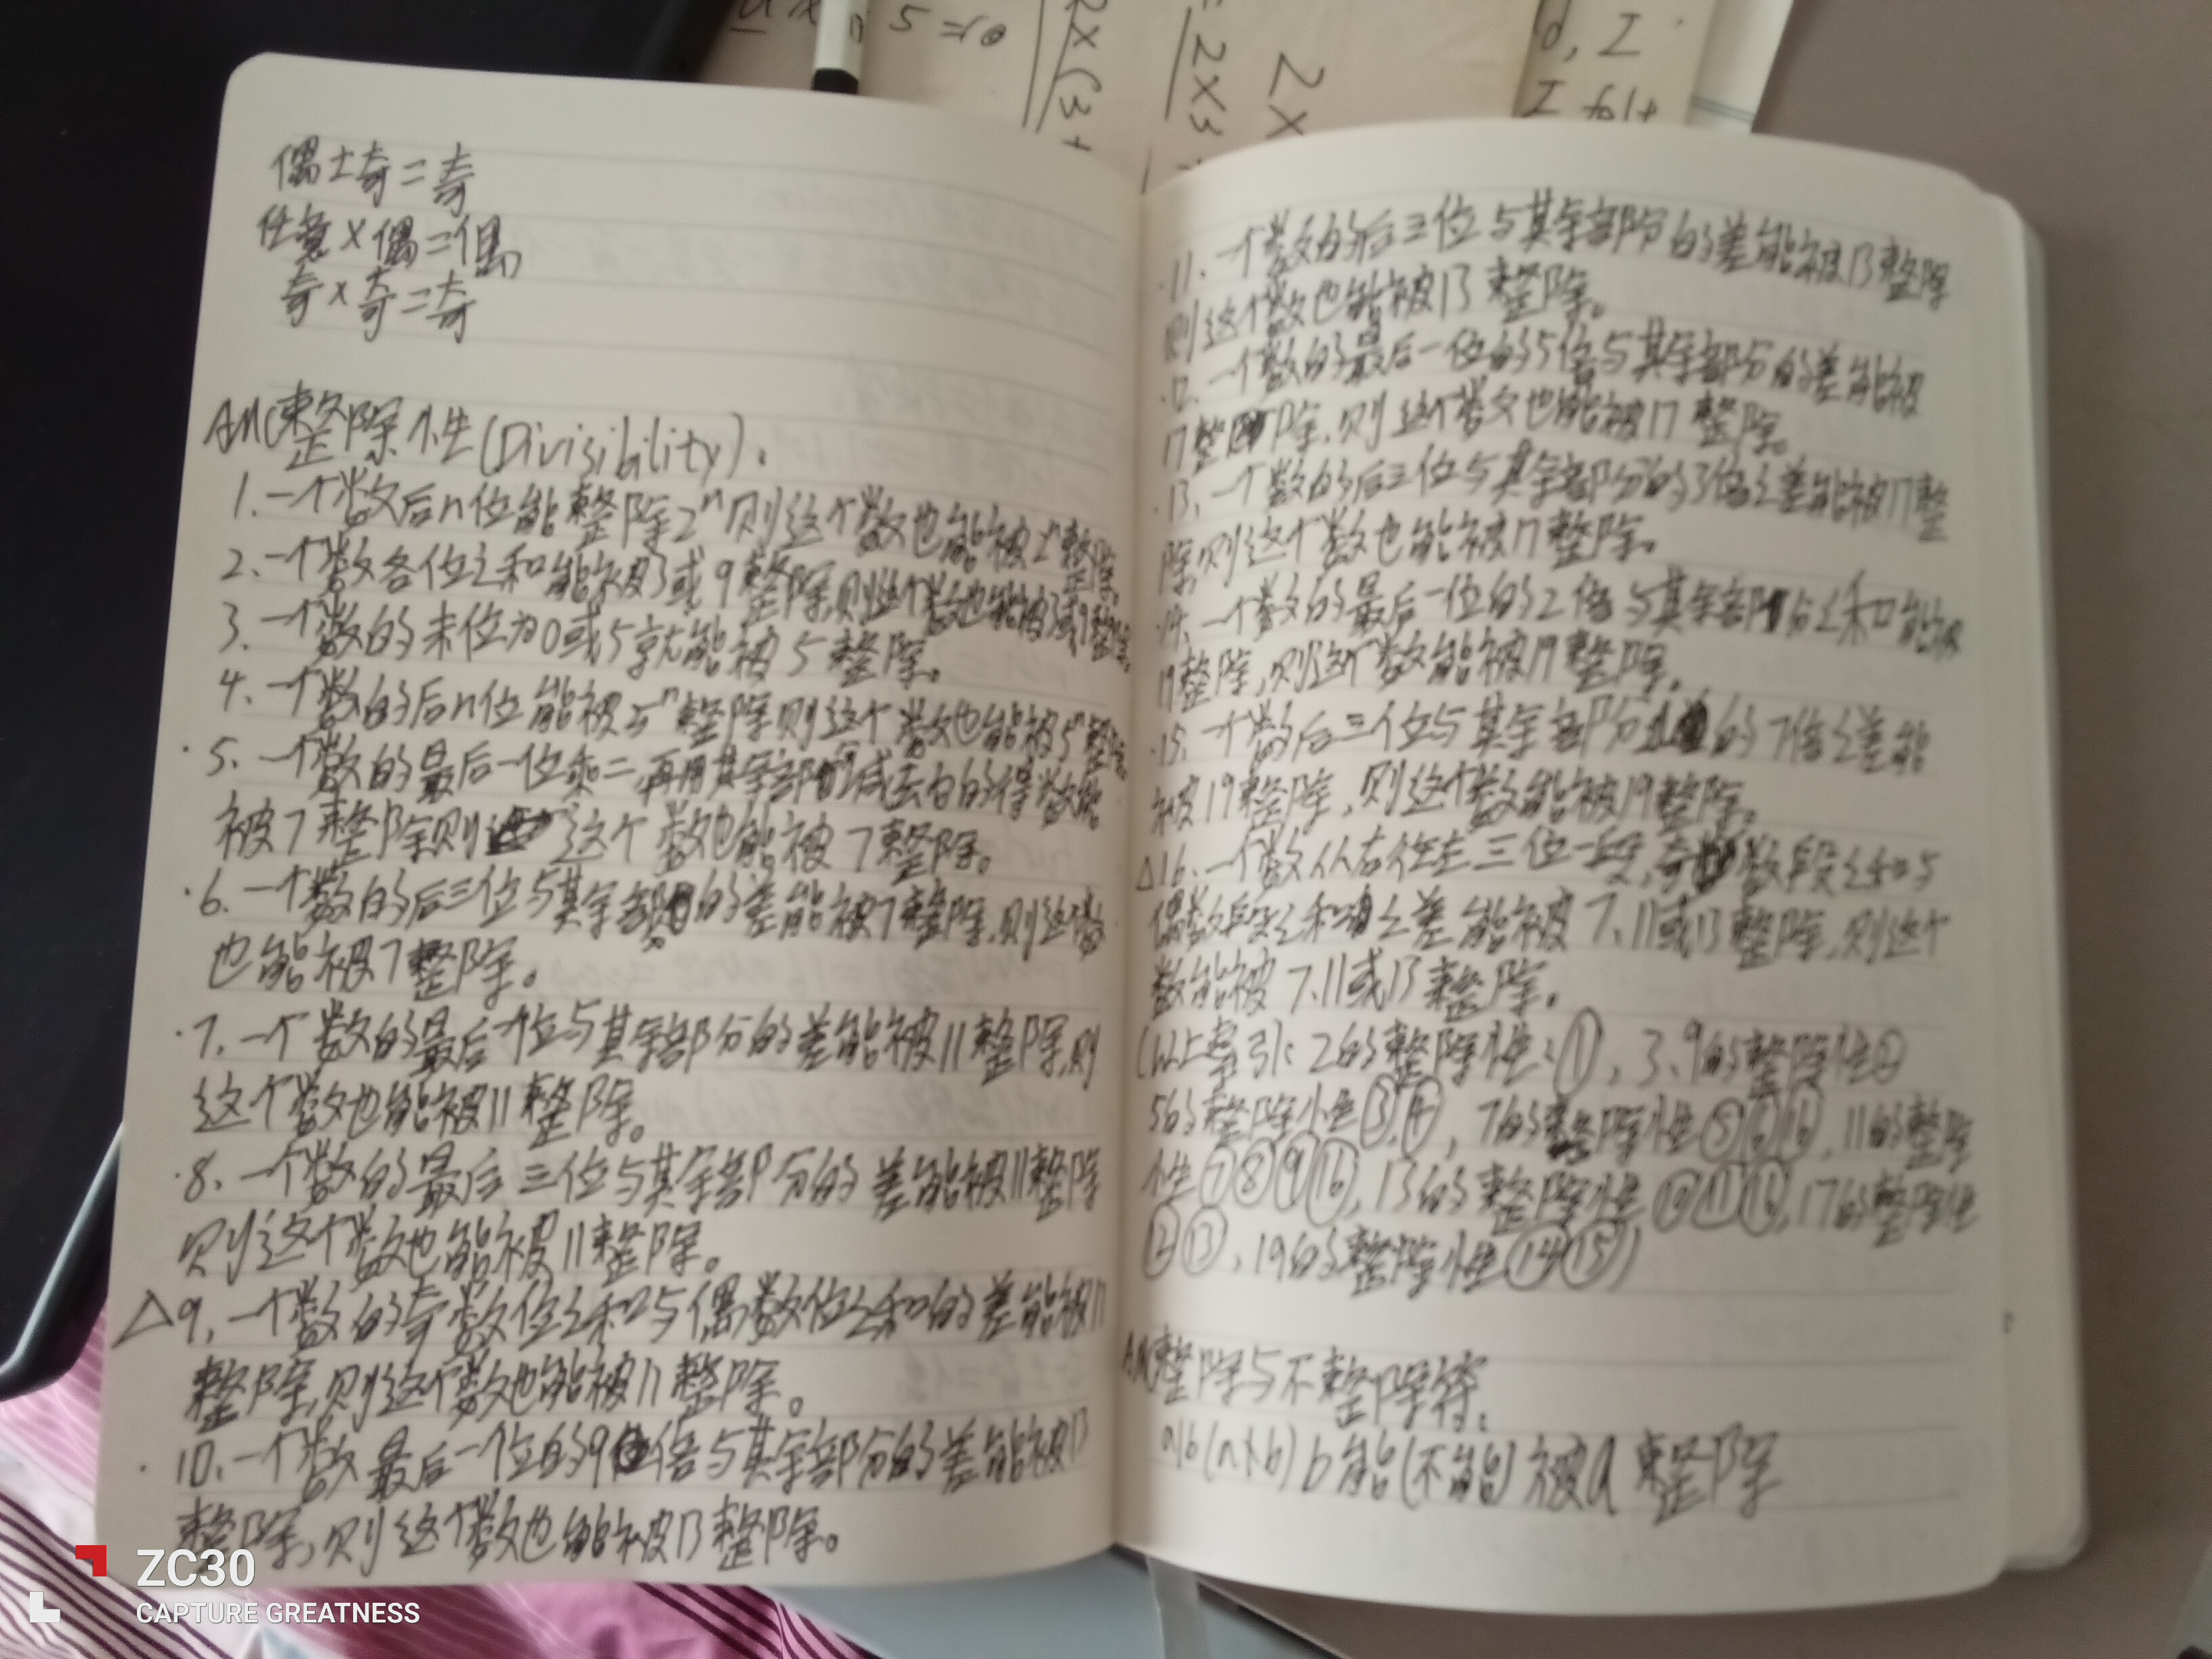 偶±奇=奇
任意×偶=偶
奇×奇=奇
AMC整除性(Divisibility):
1.一个数后n位能整除2ⁿ则这个数也能被2ⁿ整除.
2、一个数各位之和能被3或9整除,则这个数也能被3或9整除.
3、一个数的末位为0或5就能被5整除。
4、一个数的后n位能被5ⁿ整除则这个数也能被5ⁿ整除.
·5、一个数的最后一位乘二,再用其余部分减去它的得数能
被7整除则这个数也能被7整除。
·6、一个数的后三位与其余部分的差能被7整除,则这个数
也能被7整除。
·7.一个数的最后一位与其余部分的差能被11整除,则
这个数也能被11整除。
·8、一个数的最后三位与其余部分的差能被11整除
则这个数也能被11整除。
△9,一个数的奇数位之和与偶数位之和的差能被11
整除,则这个数也能被11整除。
·10、一个数最后一个位的9倍与其余部分的差能被13
整除,则这个数也能被13整除。
·11、一个数的后三位与其余部分的差能被13整除
则这个数也能被13整除。
·12、一个数的最后一位的5倍与其余部分的差能被
17整除,则这个数也能被17整除。
·13、一个数的后三位与其余部分的3倍之差能被17整
除,则这个数也能被17整除。
·14、一个数的最后一位的2倍与其余部分之和能被
19整除,则这个数能被19整除。
·15、一个数后三位与其余部分的7倍之差能
被19整除,则这个数能被19整除。
△16、一个数从右往左三位一段,奇数段之和与
偶数段之和之差能被7、11或13整除,则这个
数能被7、11或13整除。
(以上索引:2的整除性:①,3、9的整除性②
5的整除性③,④,7的整除性⑤⑥⑯,11的整除
性⑦⑧⑨⑯,13的整除性⑩⑪⑯,17的整除性
⑫⑬,19的整除性⑭⑮)
AMC整除与不整除符:
a|b(a∤b) b能(不能)被a整除
a x a 5=r
2X(3+
=2X3+
2X
ZC30
CAPTURE GREATNESS